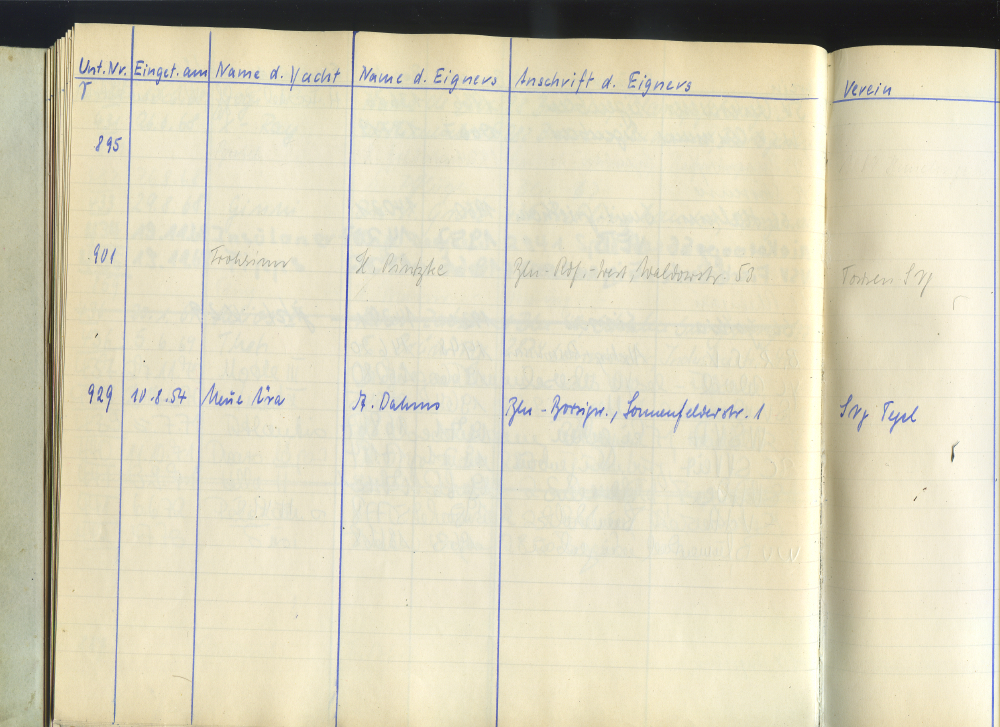 Unt. Nr. Einget. am Name d. Yacht Name d. Eigners Anschrift d. Eigners Verein
895
901 Frohsinn H. Pintzke Bln-Rdf.-West, Waldowstr. 53
929 10.8.54 Neue Ära A. Dahms Bln-Borsigw., Sonnenfelderstr. 1 SVg Tegel